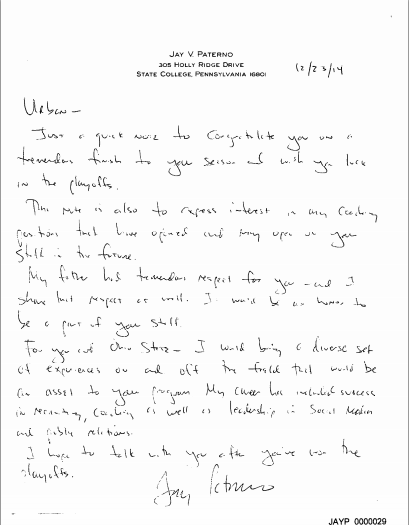 JAY V. PATERNO
305 HOLLY RIDGE DRIVE
STATE COLLEGE, PENNSYLVANIA 16801
12/23/14
Urban –
Just a quick note to congratulate you on a
tremendous finish to your season and wish you luck
in the playoffs.
This note is also to express interest in any coaching
positions that have opened and may open on your
staff in the future.
My father had tremendous respect for you – and I
share that respect as well. It would be an honor to
be a part of your staff.
For you and Ohio State – I would bring a diverse set
of experiences on and off the field that would be
an asset to your program My career has included success
in recruiting, coaching as well as leadership in Social Media
and public relations.
I hope to talk with you after you've won the
playoffs.
Jay Paterno
JAYP 0000029